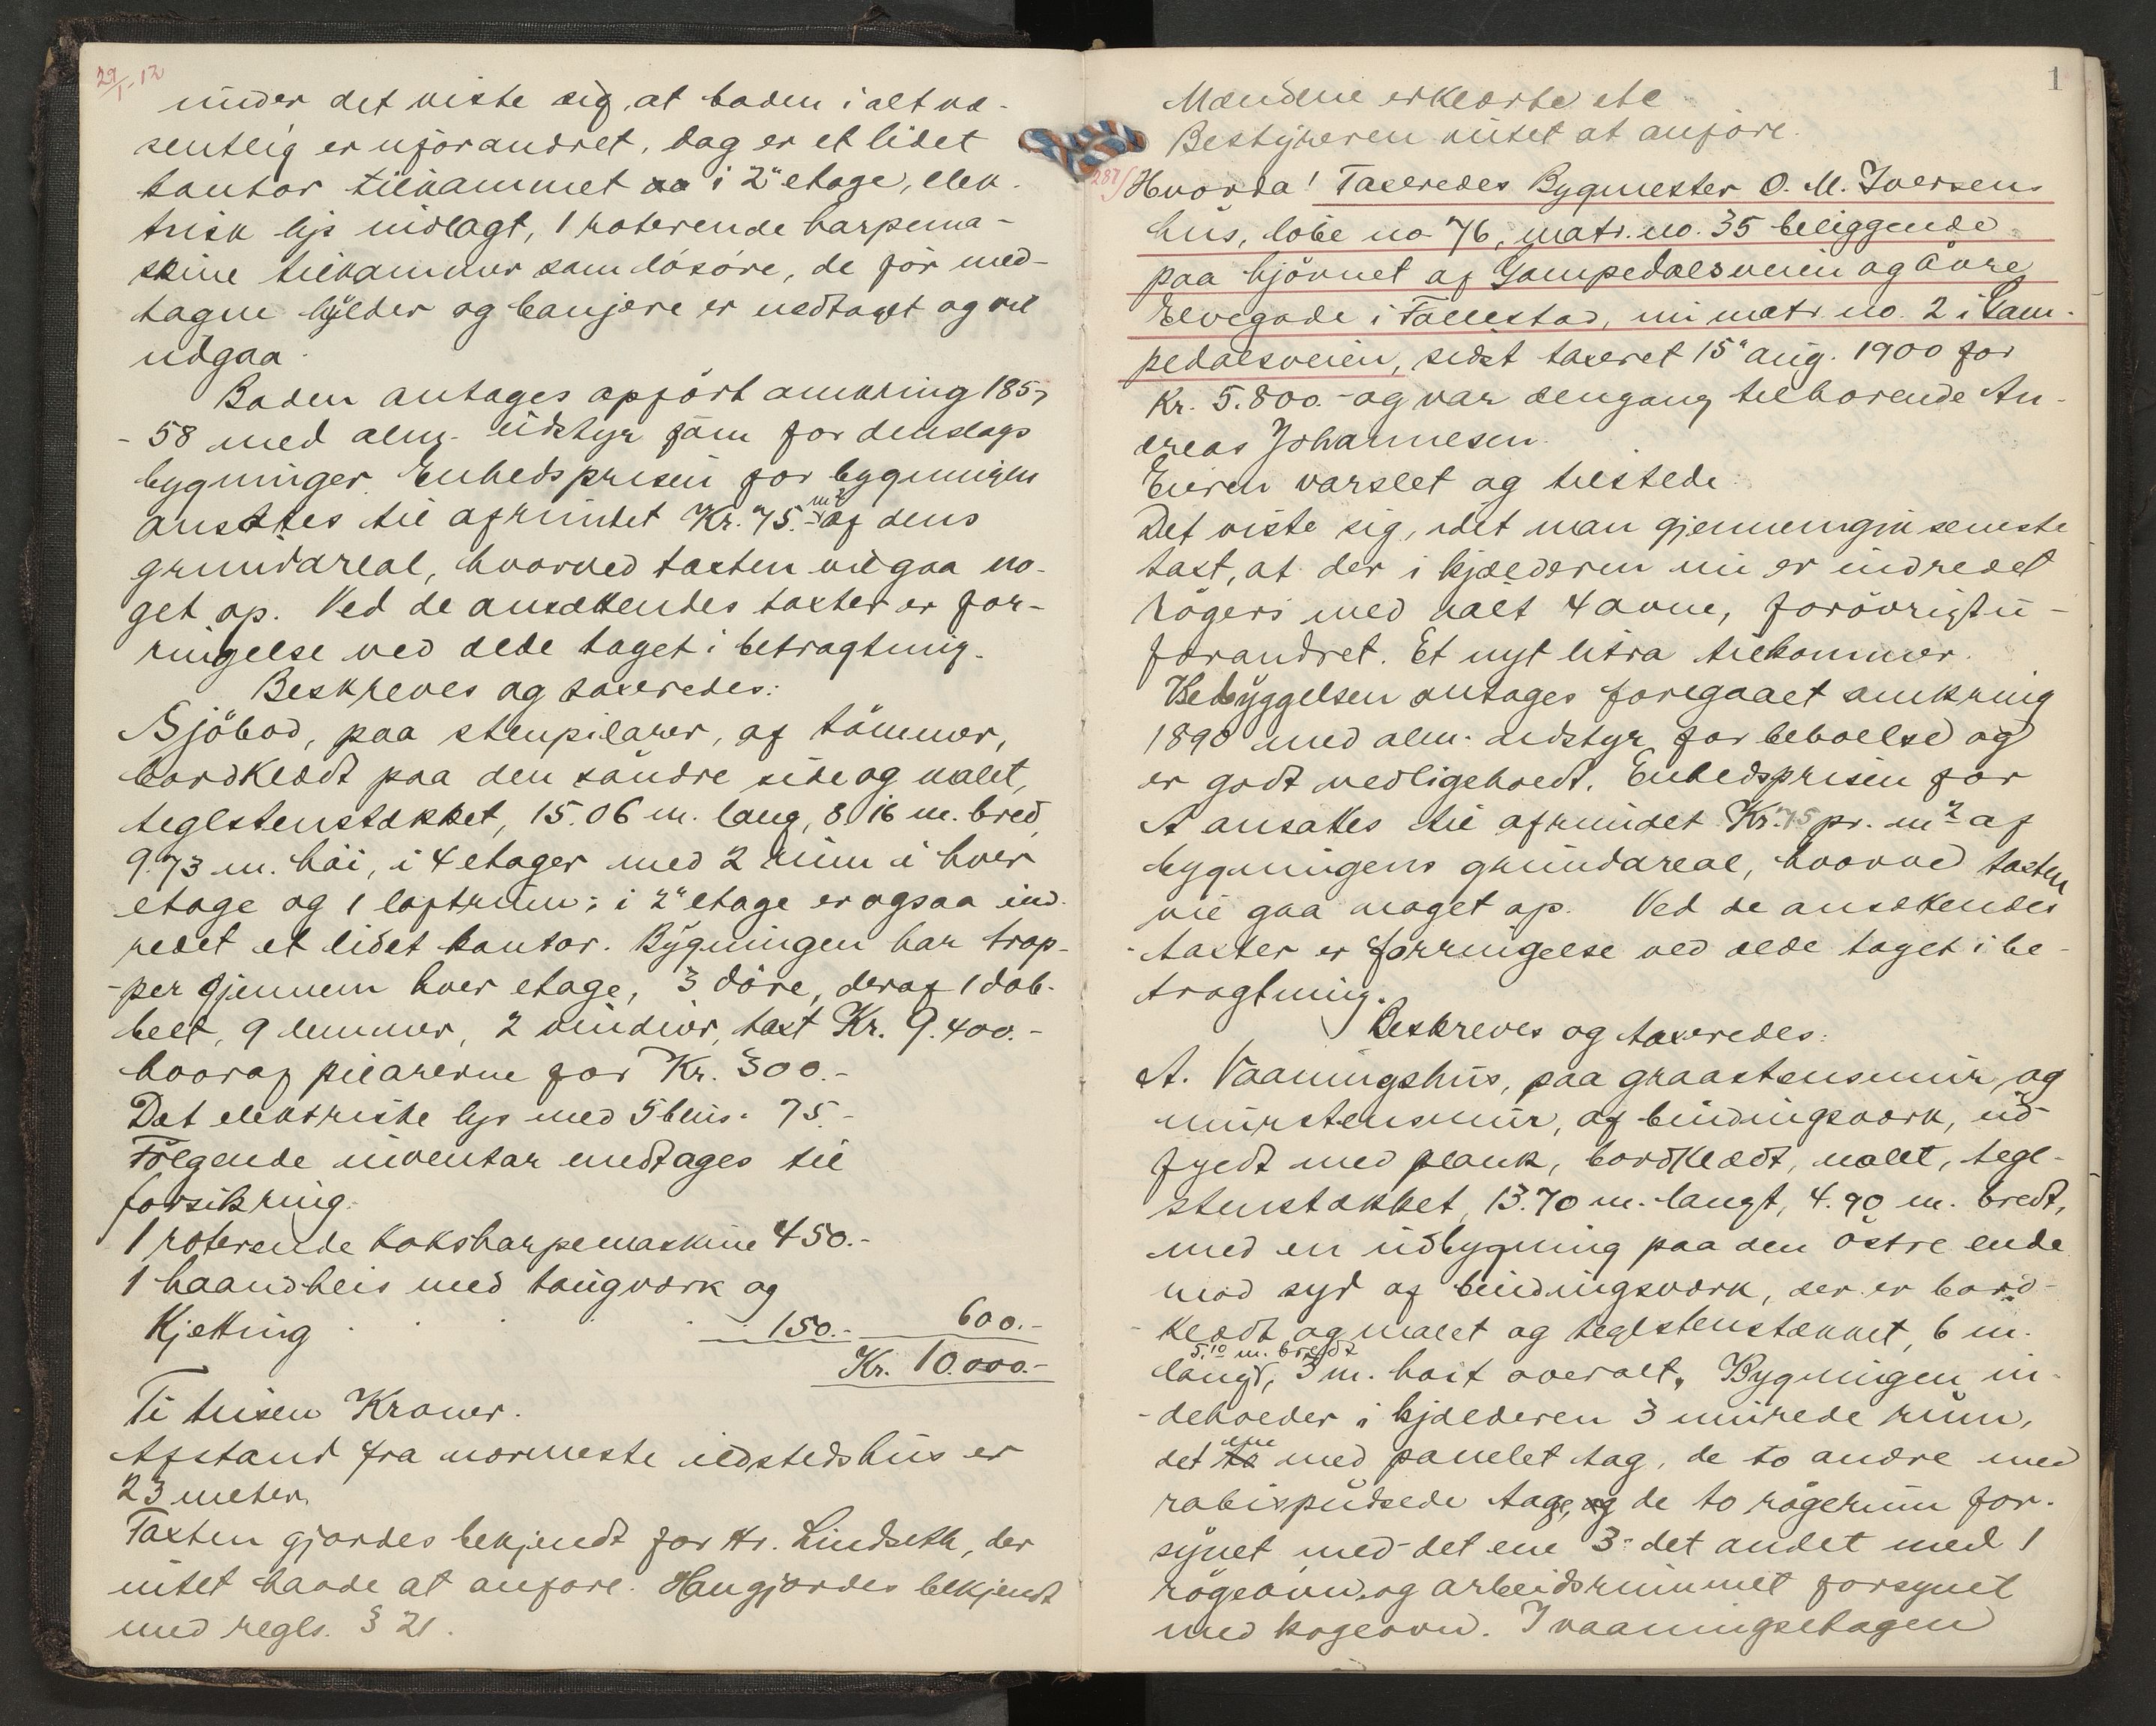 29/1-12
under det viste sig, at boden i alt væ-
sentlig er uforandret, dog er et lidet
kontor tilkommet i 2" etage, elek-
trisk lys indlagt, 1 roterende harpema-
skine tilkommer som løsøre, de før med-
tagne hylder og banjere er nedtaget og vil
udgaa.
Boden antages opført omkring 1857
- 58 med alm. udstyr som for denslags
bygninger. Enhedsprisen for bygningen
ansættes til afrundet Kr. 75.- m² af dens
grundareal, hvorved taxten vil gaa no-
get op. Ved de ansættendes taxter er for-
ringelse ved ælde taget i betragtning.
Beskreves og taxeredes:
Sjöbod, paa stenpilarer, af tömmer,
bordklædt paa den söndre side og malet,
teglstenstækket, 15.06 m. lang, 8.16 m. bred,
9.73 m. höi, i 4 etager med 2 rum i hver
etage og 1 loftrum; i 2" etage er ogsaa ind-
redet et lidet kontor. Bygningen har trap-
-per gjennem hver etage, 3 döre, deraf 1 dob-
belt, 9 lemmer, 2 vinduer, taxt Kr. 9.400.-
hvoraf pilarerne for Kr. 300.-
Det elektriske lys med 5 blus. 75.-
Fölgende inventar medtages til
forsikring.
1 roterende koksharpemaskine 450.-
1 haandheis med taugværk og
Kjetting . . . . 150.- 600.-
Kr. 10.000.-
Ti tusen Kroner.
Afstand fra nærmeste ildstedshus er
23 meter.
Taxten gjordes bekjendt for Hr. Lindseth, der
intet havde at anföre. Han gjordes bekjendt
med regls. § 21.
1
Mændene erklærte etc
Bestyreren intet at anföre.
287/ Hvorda! Taxeredes Bygmester O. M. Iversens
hus, löbe no 76, matr. no. 35 beliggende
paa hjörnet af Gompedalsveien og Övre
Elvegade i Follestad, nu matr. no. 2 i Gom-
pedalsveien, sidst taxeret 15" aug. 1900 for
Kr. 5.800.- og var dengang tilhörende An-
dreas Johannesen.
Eieren varslet og tilstede.
Det viste sig, idet man gjennemgik seneste
taxt, at der i kjælderen nu er indredet
rögeri med ialt 4 ovne, forövrigt u-
forandret. Et nyt litra tilkommer.
Bebyggelsen antages foregaaet omkring
1890 med alm. udstyr for beboelse og
er godt vedligeholdt. Enhedsprisen for
A ansættes til afrundet Kr. 75 pr. m² af
bygningens grundareal, hvorved taxten
vil gaa noget op. Ved de ansættendes
taxter er forringelse ved ælde taget i be-
tragtning.
Beskreves og taxeredes:
A. Vaaningshus, paa graastensmur og
murstensmur, af bindingsværk, ud-
fyldt med plank, bordklædt, malet, tegl-
stenstækket, 13.70 m. langt, 4.90 m. bredt,
med en udbygning paa den östre ende
mod syd af bindingsværk, der er bord-
klædt og malet og teglstenstækket, 6 m.
langt, 5.10 m. bredt 3 m. höit overalt. Bygningen in-
-deholder i kjælderen 3 murede rum,
det ene med panelet tag, de to andre med
rabispudsede tage, og de to rögerum for-
synet med det ene 3- det andet med 1
rögeovn og arbeidsrummet forsynet
med kogeovn. I vaaningsetagen